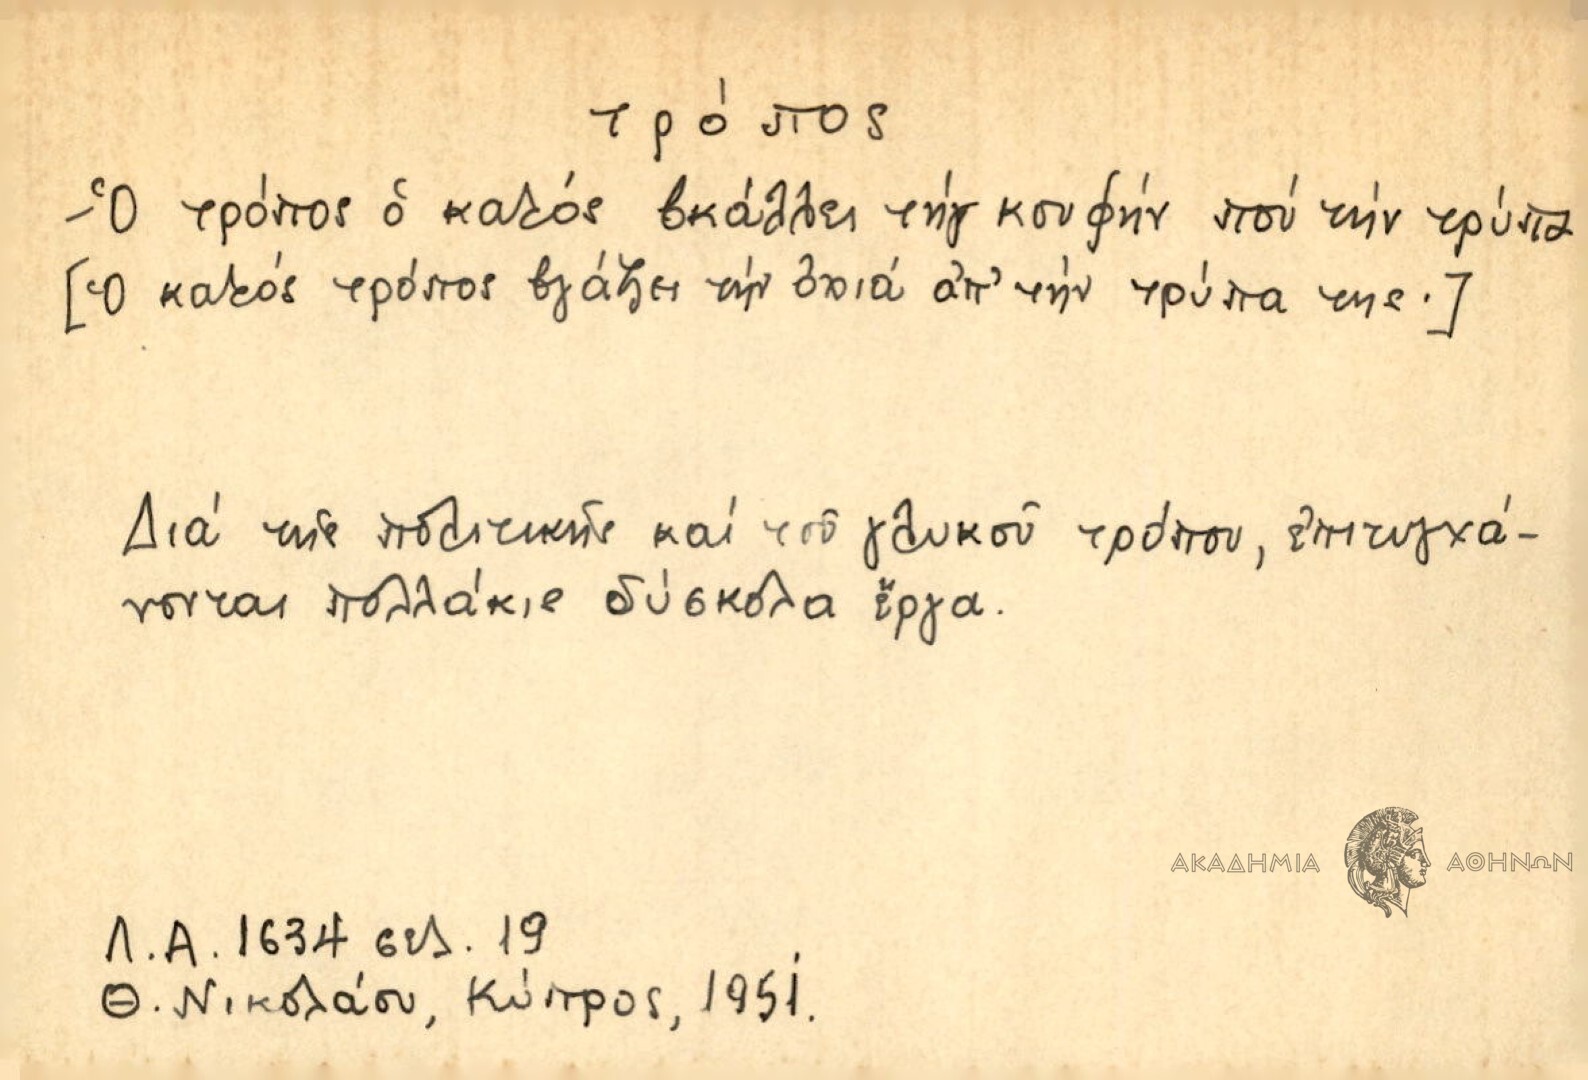 τρόπος
-Ὁ τρόπος ὁ καλός βκάλλει τήγ κουφήν πού τήν τρύπα
[Ὁ καλός τρόπος βγάζει τήν ὀχιά ἀπ' τήν τρύπα της.]
Διά τῆς πολιτικῆς καί τοῦ γλυκοῦ τρόπου, ἐπιτυγχά-
νονται πολλάκις δύσκολα ἔργα.
ΑΚΑΔΗΜΙΑ ΑΘΗΝΩΝ
Λ.Α. 1634 σελ. 19
Θ. Νικολάου, Κύπρος, 1951.